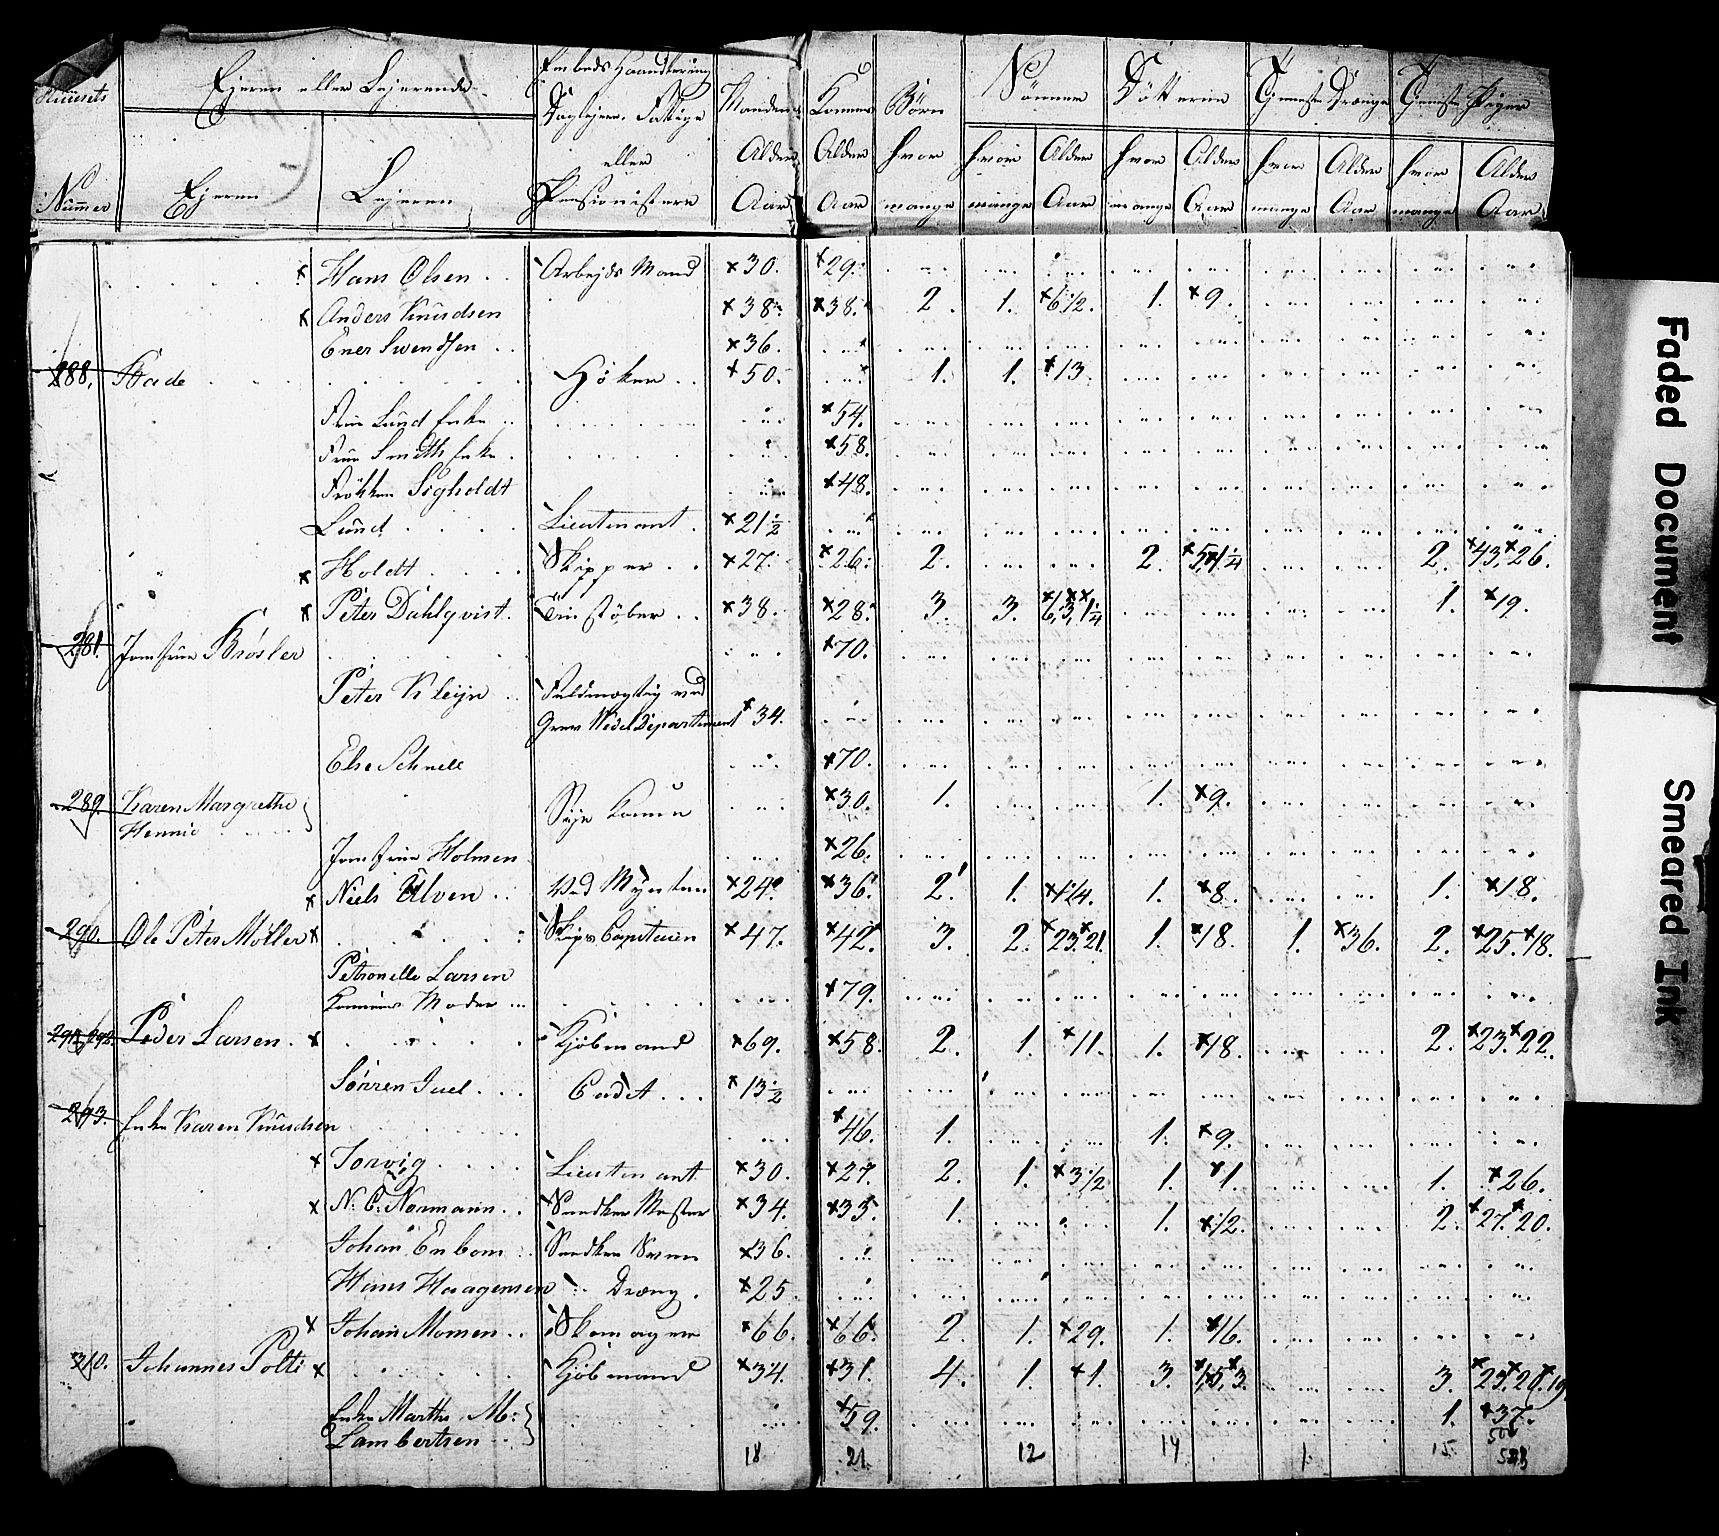 Huusets Nummer | Ejeren eller Lejerende | Embeds Haandtering Daglejere. Fattige eller Pensionistere | Mandens Alder Aar | Konens Alder Aar | Børn hvor mange | Sønner | Døttrene | Tjeneste Drænge | Tjeneste Piger
Ejeren | Lejeren | hvor mange | Alder Aar | hvor mange | Alder Aar | hvor mange | Alder Aar | hvor mange | Alder Aar
x Hans Olsen . . Arbejds Mand x30. x29.
x Anders Knudsen x38. x38. 2. 1. x6 1/2. 1. x9.
Ener Swendsen . . x36.
288. Bade Høker . . x50. 1. 1. x13.
Frue Lund Enke . . x54.
Frue Smith Enke . x58.
Frøken Sigholdt x48.
Lund Lieutenant . x21 1/2
x Holdt Skipper . . x27. x26. 2. 2. x5. x1 1/4 2. x43. x26.
x Peter Dahlqvist . Tinstøber . . x38. x28. 3. 3. x6, x3, x1 1/4 1. x19.
281. Jomfrue Brøsler x70.
Peter Kleijn . . Fuldmægtig ved
Grev Wedel Departement x34.
Else Schnell x70.
289. Karen Margrethe } Sye Konen x30. 1. 1. x9.
Hennie
Jomfrue Holmen x26.
x Niels Ulven . . Ved Mynten x24. x36. 2. 1. x1/4. 1. x8. 1. x18.
290. Ole Peter Møller x Skips Capitaien x47. x42. 3. 2. x23. x21. 1. x18. 1. x36. 2. x25. x18.
Petronelle Larsen
Konens Moder . . . x79.
291. 292. Peder Larsen . x Kjøbmand x69. x58. 2. 1. x11. 1. x18. 2. x23. x22.
Sørren Juel . . . Cadet . . . x13 1/2
293. Enke Karen Knudsen x46. 1. 1. x9.
x Torvig Lieutenant x30. x27. 2. 1. x3 1/2 1. x1. 1. x26.
x N: C: Normann . . Snedker Mester x34. x33. 1. 1. x1/2. 2. x27. x20.
Johan Enbom . . Snedker Svenn x36.
Hans Haagensen Dreng . x25
x Johan Monsen . . Skomager x66. x66. 2. 1. x29. 1. x16.
310. Johannes Poltis x Kjøbmand x34. x31. 4. 1. x1. 3. x1, x5, x3. 3. x23. x20. x19
Enke Marthe M: } x59. 1. x37.
Lambertsen
18 21. 12 14 1 15.
Faded Document
Smeared Ink